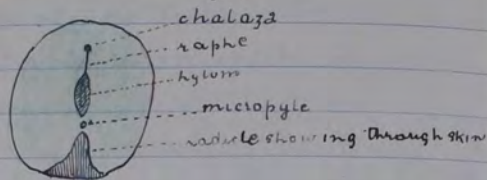 chalaza
raphe
hylum
micropyle
radicle showing through skin